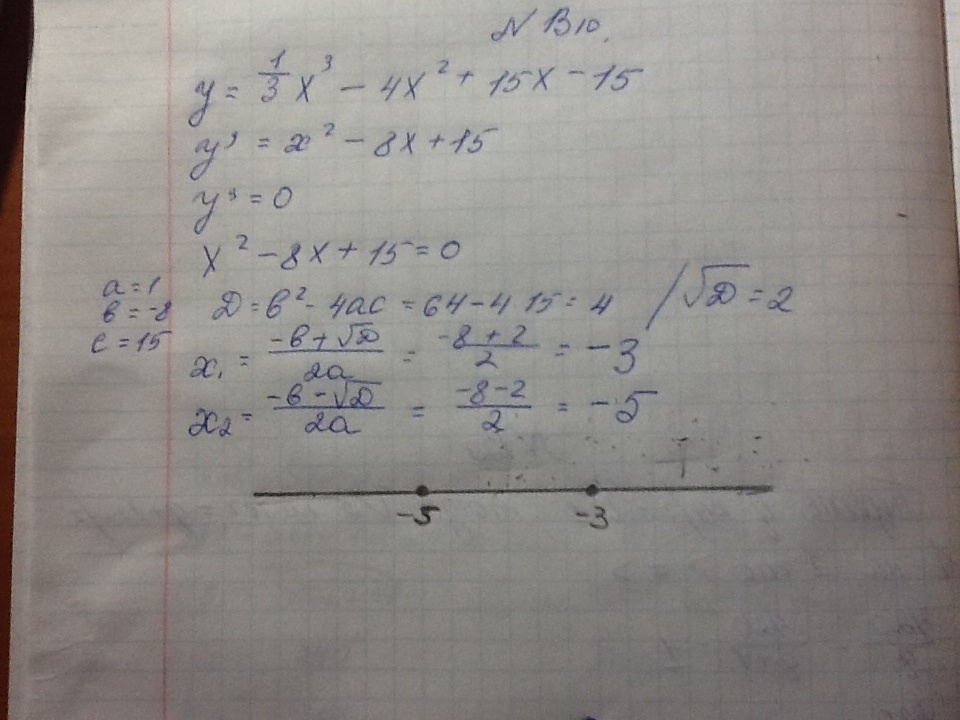 N B10.
y = 1/3 x³ - 4x² + 15x - 15
y' = x² - 8x + 15
y' = 0
x² - 8x + 15 = 0
a = 1
b = -8
c = 15
D = b² - 4ac = 64 - 4·15 = 4 / √D = 2
x₁ = (-b + √D)/2a = (-8 + 2)/2 = -3
x₂ = (-b - √D)/2a = (-8 - 2)/2 = -5
-5 -3